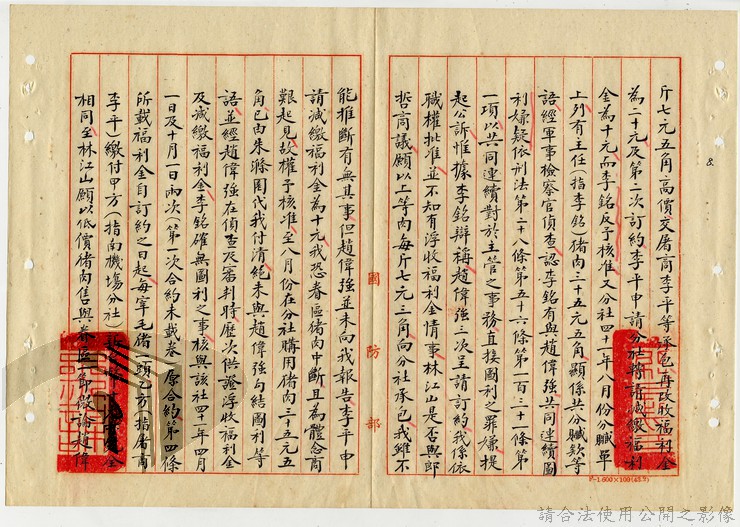 8.
斤七元五角高價交屠商李平等承包再改收福利金
為二十元及第二次訂約李平申請分社轉請減繳福利
金為十元而李銘反予核准又分社四十一年八月份分贓單
上列有主任(指李銘)猪肉三十五元五角顯係共分贓款等
語經軍事檢察官偵查認李銘有與趙偉強共同連續圖
利嫌疑依刑法第二十八條第五十六條第一百三十一條第
一項以共同連續對於主管之事務直接圖利之罪嫌提
起公訴惟據李銘辯稱趙偉強三次呈請訂約我係依
職權批准並不知有浮收福利金情事林江山是否與郎
哲商議願以上等肉每斤七元三角向分社承包我雖不
國防部
能推斷有無其事但趙偉強並未向我報告李平申
請減繳福利金為十元我恐眷區猪肉中斷且為體念商
艱起見故權予核准至八月份在分社購用猪肉三十五元五
角已由朱滌圍代我付清絕未與趙偉強勾結圖利等
語並經趙偉強在偵查及審判時歷次供證浮收福利金
及減繳福利金李銘確無圖利之事核與該社四十一年四月
一日及十月一日兩次(第一次合約未載卷)原合約第四條
所載福利金自訂約之日起每宰毛猪一頭乙方(指屠商
李平)繳付甲方(指南機塲分社)
金
相同至林江山願以低價猪肉售與眷區一節縱論趙偉
P-1.600×100(43.2)
請合法使用公開之影像